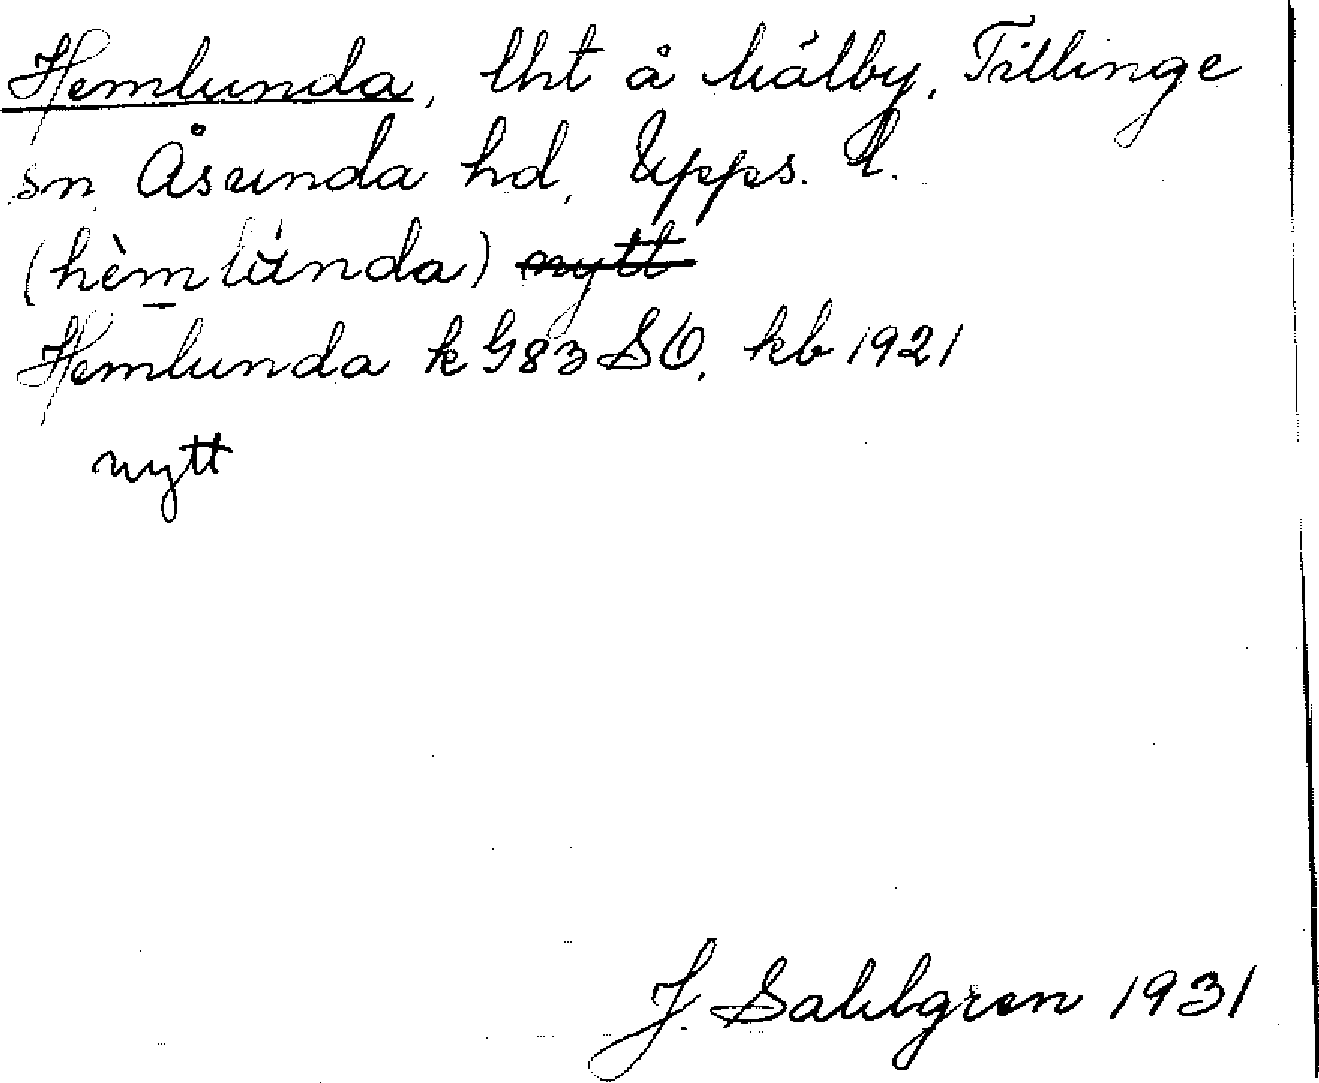 Hemlunda, lht å Kålby, Tillinge
sn, Åsunda hd, Upps. l.
(hèmlúnda) nytt
Hemlunda k G83 SO, kb 1921
nytt
J. Sahlgren 1931